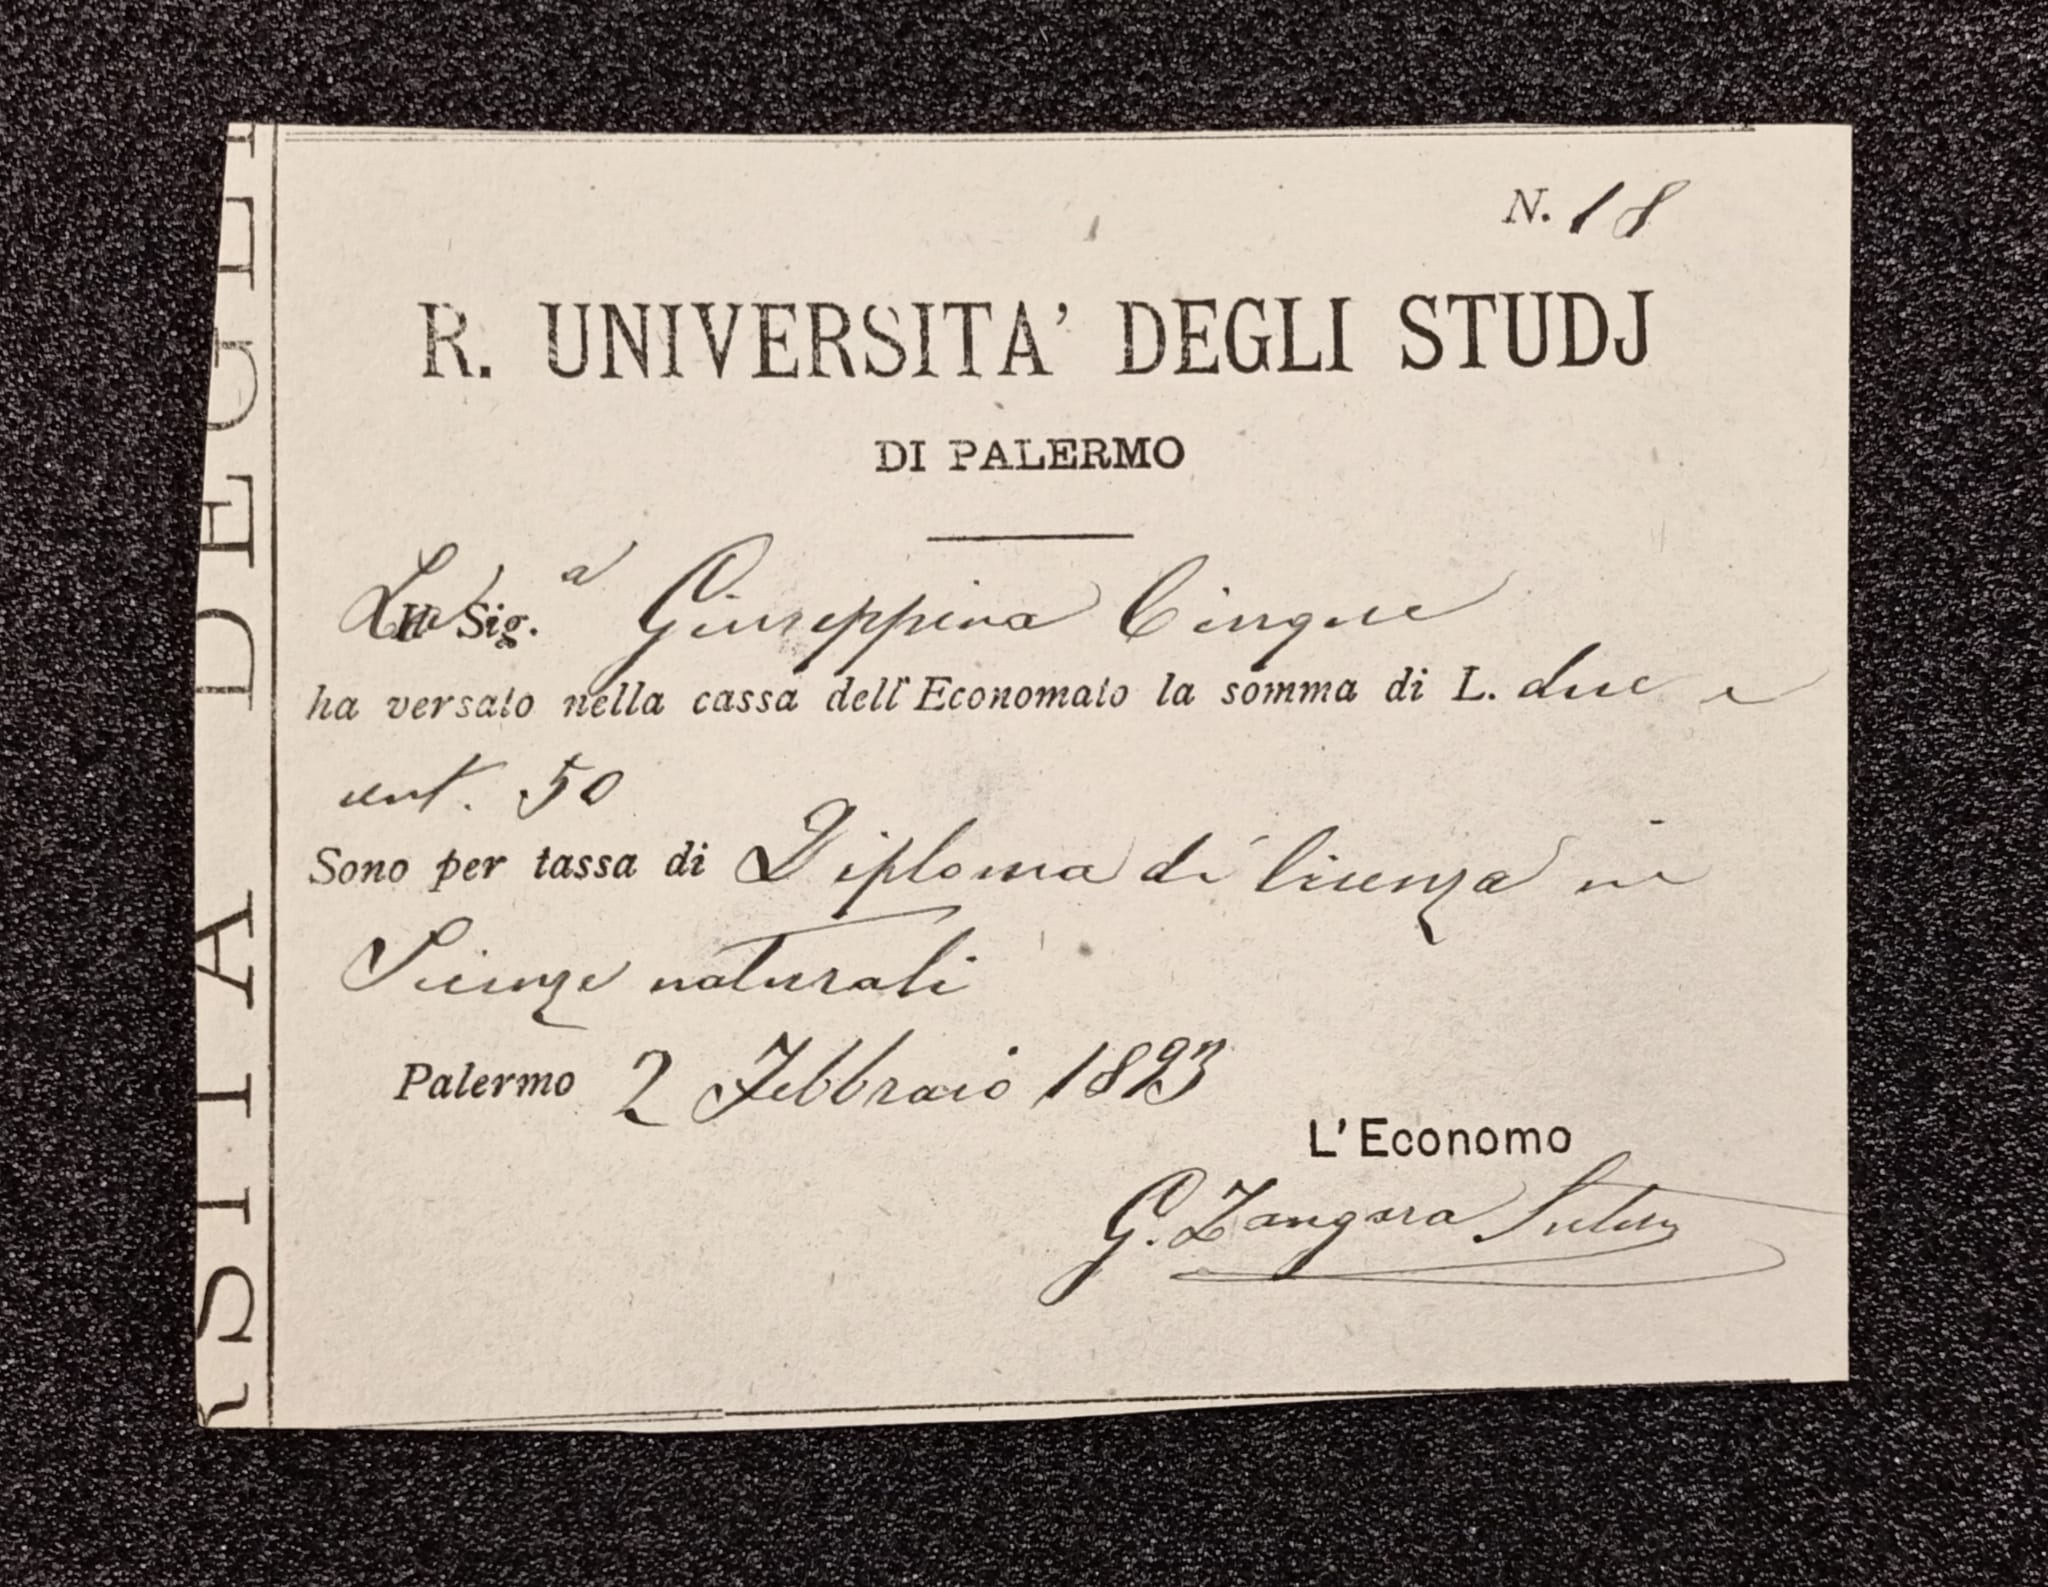 N. 18
R. UNIVERSITA' DEGLI STUDJ
DI PALERMO
La Sig.a Giuseppina Cinque
ha versato nella cassa dell'Economato la somma di L. due e
cent. 50
Sono per tassa di Diploma di licenza in
Scienze naturali
Palermo 2 Febbraio 1893
L'Economo
G. Zangara
RSITA DEGLI